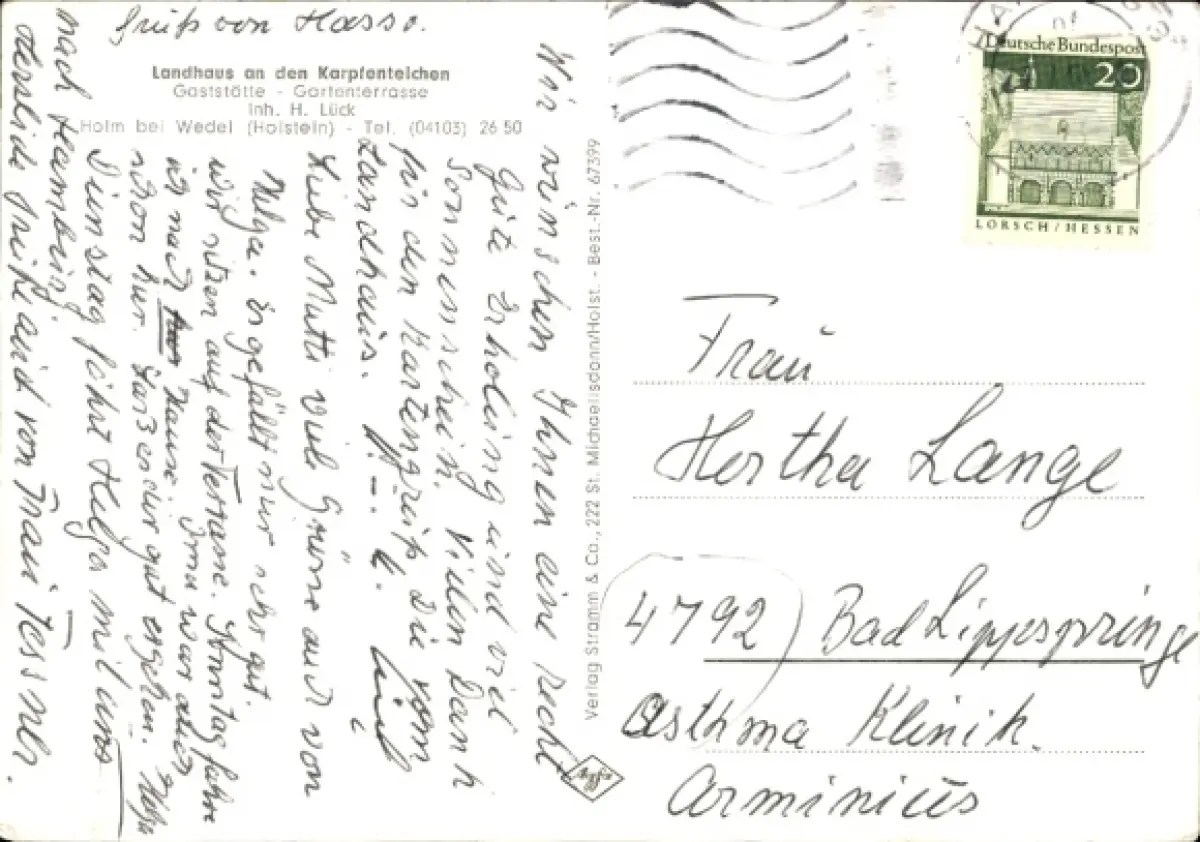 Gruß von Hasso.
Landhaus an den Karpfenteichen
Gaststätte - Gartenterrasse
Inh. H. Lück
Holm bei Wedel (Holstein) - Tel. (04103) 26 50
Wir wünschen Ihnen eine recht
gute Erholung und viel
Sonnenschein. Vielen Dank
für den Kartengruß. Die vom
Landhaus. H. u. Lück
Liebe Mutti viele Grüsse auch von
Helga. Es gefällt mir sehr gut.
wir sitzen auf der Terrasse. Sonntag fahre
ich nach Hause. Irma war auch
schon hier. Laß es dir gut ergehen. Helga
Dienstag fährt Helga mit uns
nach Hamburg
Herzliche Grüße auch von Frau Tessner.
Verlag Stramm & Co., 222 St. Michaelisdonn/Holst. - Best.-Nr. 67399
Agfa
Deutsche Bundespost
20
LORSCH/HESSEN
Frau
Hertha Lange
4792) Bad Lippespringe
Asthma Klinik.
Arminius